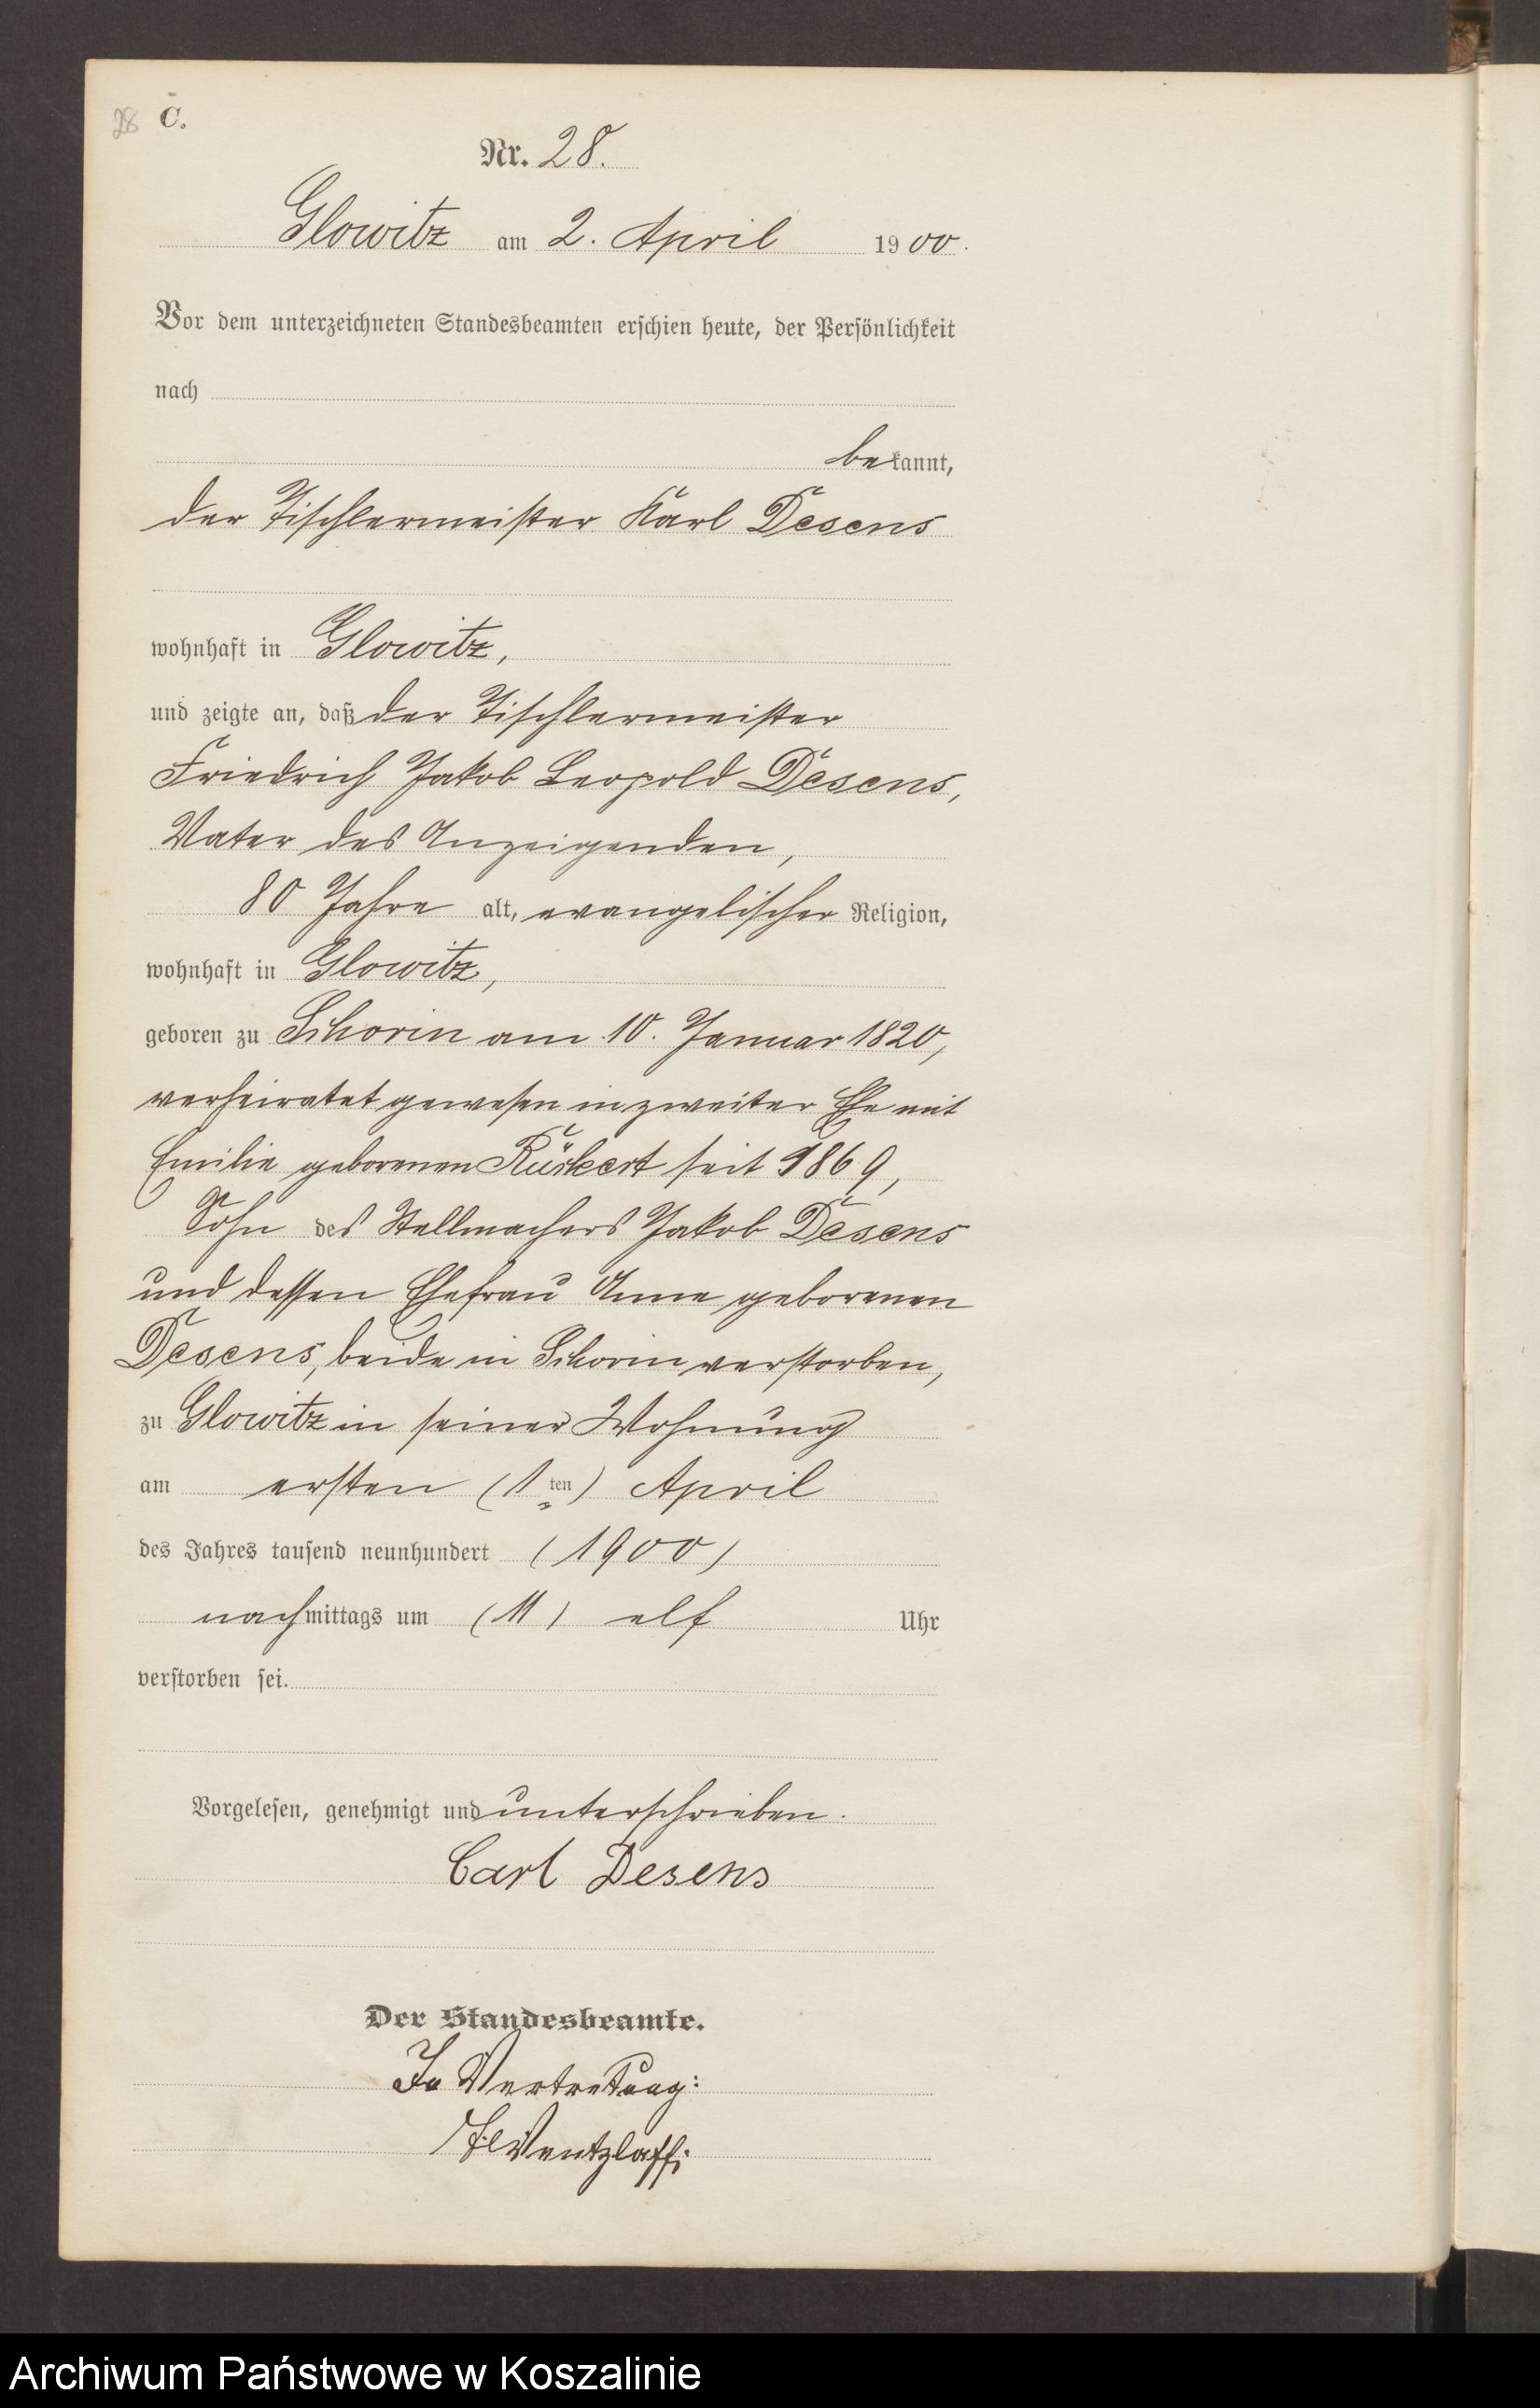 28 C.
Nr. 28.
Glowitz am 2. April 1900.
Vor dem unterzeichneten Standesbeamten erschien heute, der Persönlichkeit
nach
bekannt,
der Tischlermeister Karl Desens
wohnhaft in Glowitz,
und zeigte an, daß der Tischlermeister
Friedrich Jakob Leopold Desens,
Vater des Anzeigenden,
80 Jahre alt, evangelischer Religion,
wohnhaft in Glowitz,
geboren zu Schorin am 10. Januar 1820,
verheiratet gewesen in zweiter Ehe mit
Emilie geborenen seit 1869,
Sohn des Stellmachers Jakob Desens
und dessen Ehefrau Anna geborenen
Desens, beide in Schorin verstorben,
zu Glowitz in seiner Wohnung
am ersten (1 ten) April
des Jahres tausend neunhundert (1900)
nachmittags um (11) elf Uhr
verstorben sei.
Vorgelesen, genehmigt und unterschrieben.
Carl Desens
Der Standesbeamte.
In Vertretung:
Wentzlaff
Archiwum Państwowe w Koszalinie